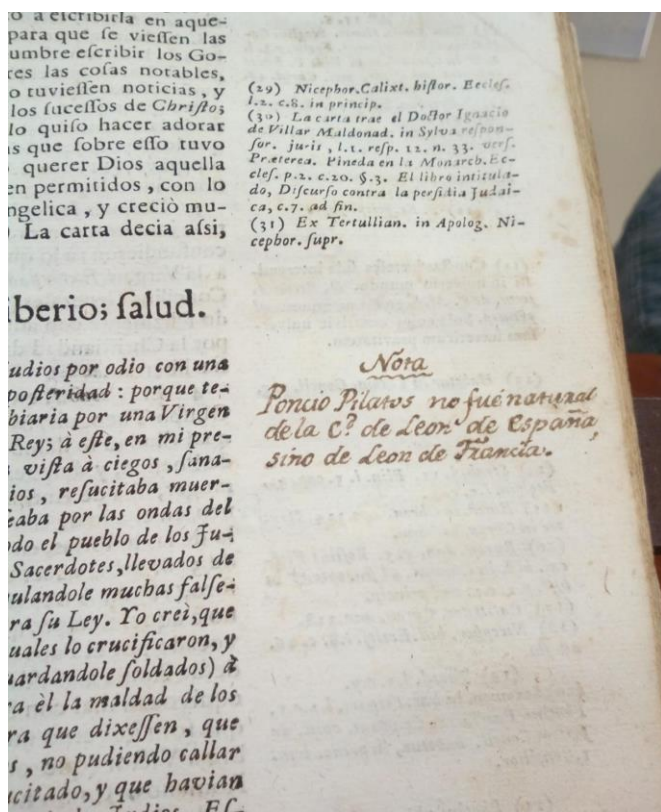 o a eſcribirla en aque-
para que ſe vieſſen las
umbre eſcribir los Go-
res las coſas notables,
o tuvieſſen noticias, y
los ſuceſſos de Chriſto;
lo quiſo hacer adorar
s que ſobre eſſo tuvo
querer Dios aquella
en permitidos, con lo
ngelica, y creciò mu-
La carta decia aſsi,
iberio; ſalud.
udios por odio con una
poſteridad: porque te-
biaria por una Virgen
Rey; à eſte, en mi pre-
viſta à ciegos, ſana-
ios, reſucitaba muer-
eaba por las ondas del
odo el pueblo de los Ju-
Sacerdotes, llevados de
ulandole muchas falſe-
ra ſu Ley. Yo creì, que
uales lo crucificaron, y
uardandole ſoldados) à
ra èl la maldad de los
ra que dixeſſen, que
s, no pudiendo callar
ucitado, y que havian
(29) Nicephor. Calixt. hiſtor. Eccleſ.
l.2. c.8. in princip.
(30) La carta trae el Doctor Ignacio
de Villar Maldonad. in Sylva reſpon-
ſor. juris, l.1. reſp. 12. n. 33. verſ.
Præterea. Pineda en la Monarch. Ec-
cleſ. p.2. c.20. §.3. El libro intitula-
do, Diſcurſo contra la perfidia Judai-
ca, c.7. ad fin.
(31) Ex Tertullian. in Apolog. Ni-
cephor. ſupr.
Nota
Poncio Pilatos no fué natural
de la C.ᵈ de Leon de España,
sino de Leon de Francia.